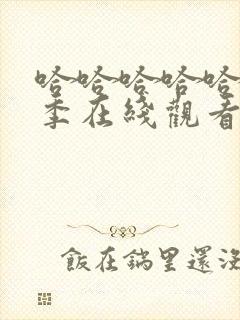 哈哈哈哈哈
季在綫觀看
飯在鍋里還沒